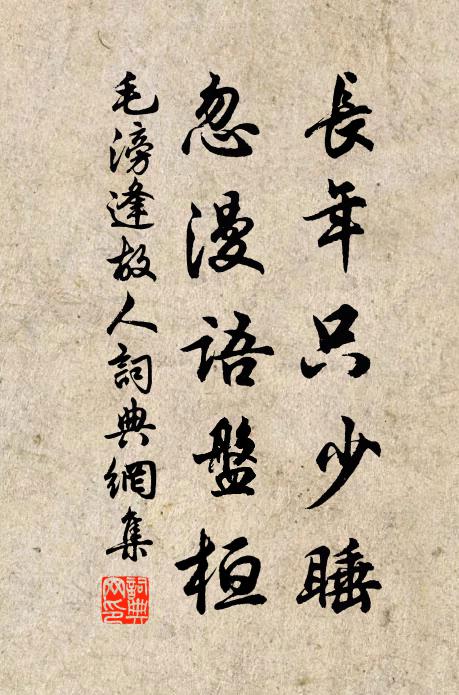 長年只少睡
忽漫語盤桓
毛滂逢故人詞典網集
詞典
网印